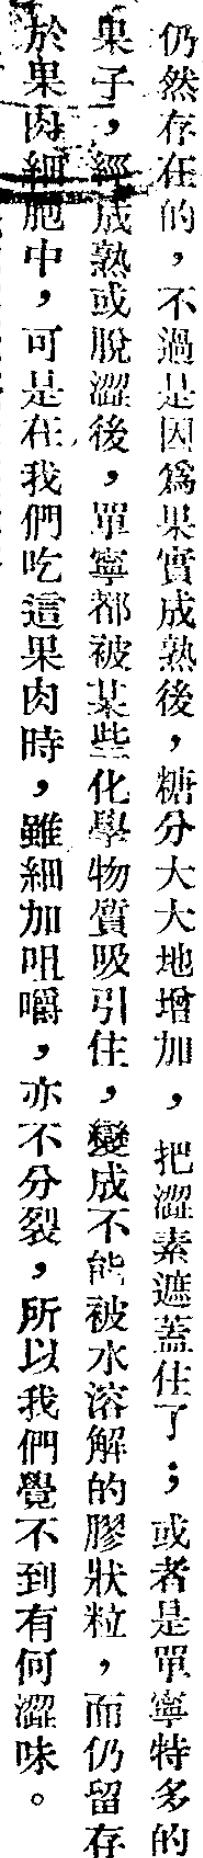 仍然存在的，不過是因爲果實成熟後，糖分大大地增加，把澀素遮蓋住了；或者是單寧特多的
果子，經成熟或脫澀後，單寧都被某些化學物質吸引住，變成不能被水溶解的膠狀粒，而仍留存
於果肉細胞中，可是在我們吃這果肉時，雖細加咀嚼，亦不分裂，所以我們覺不到有何澀味。